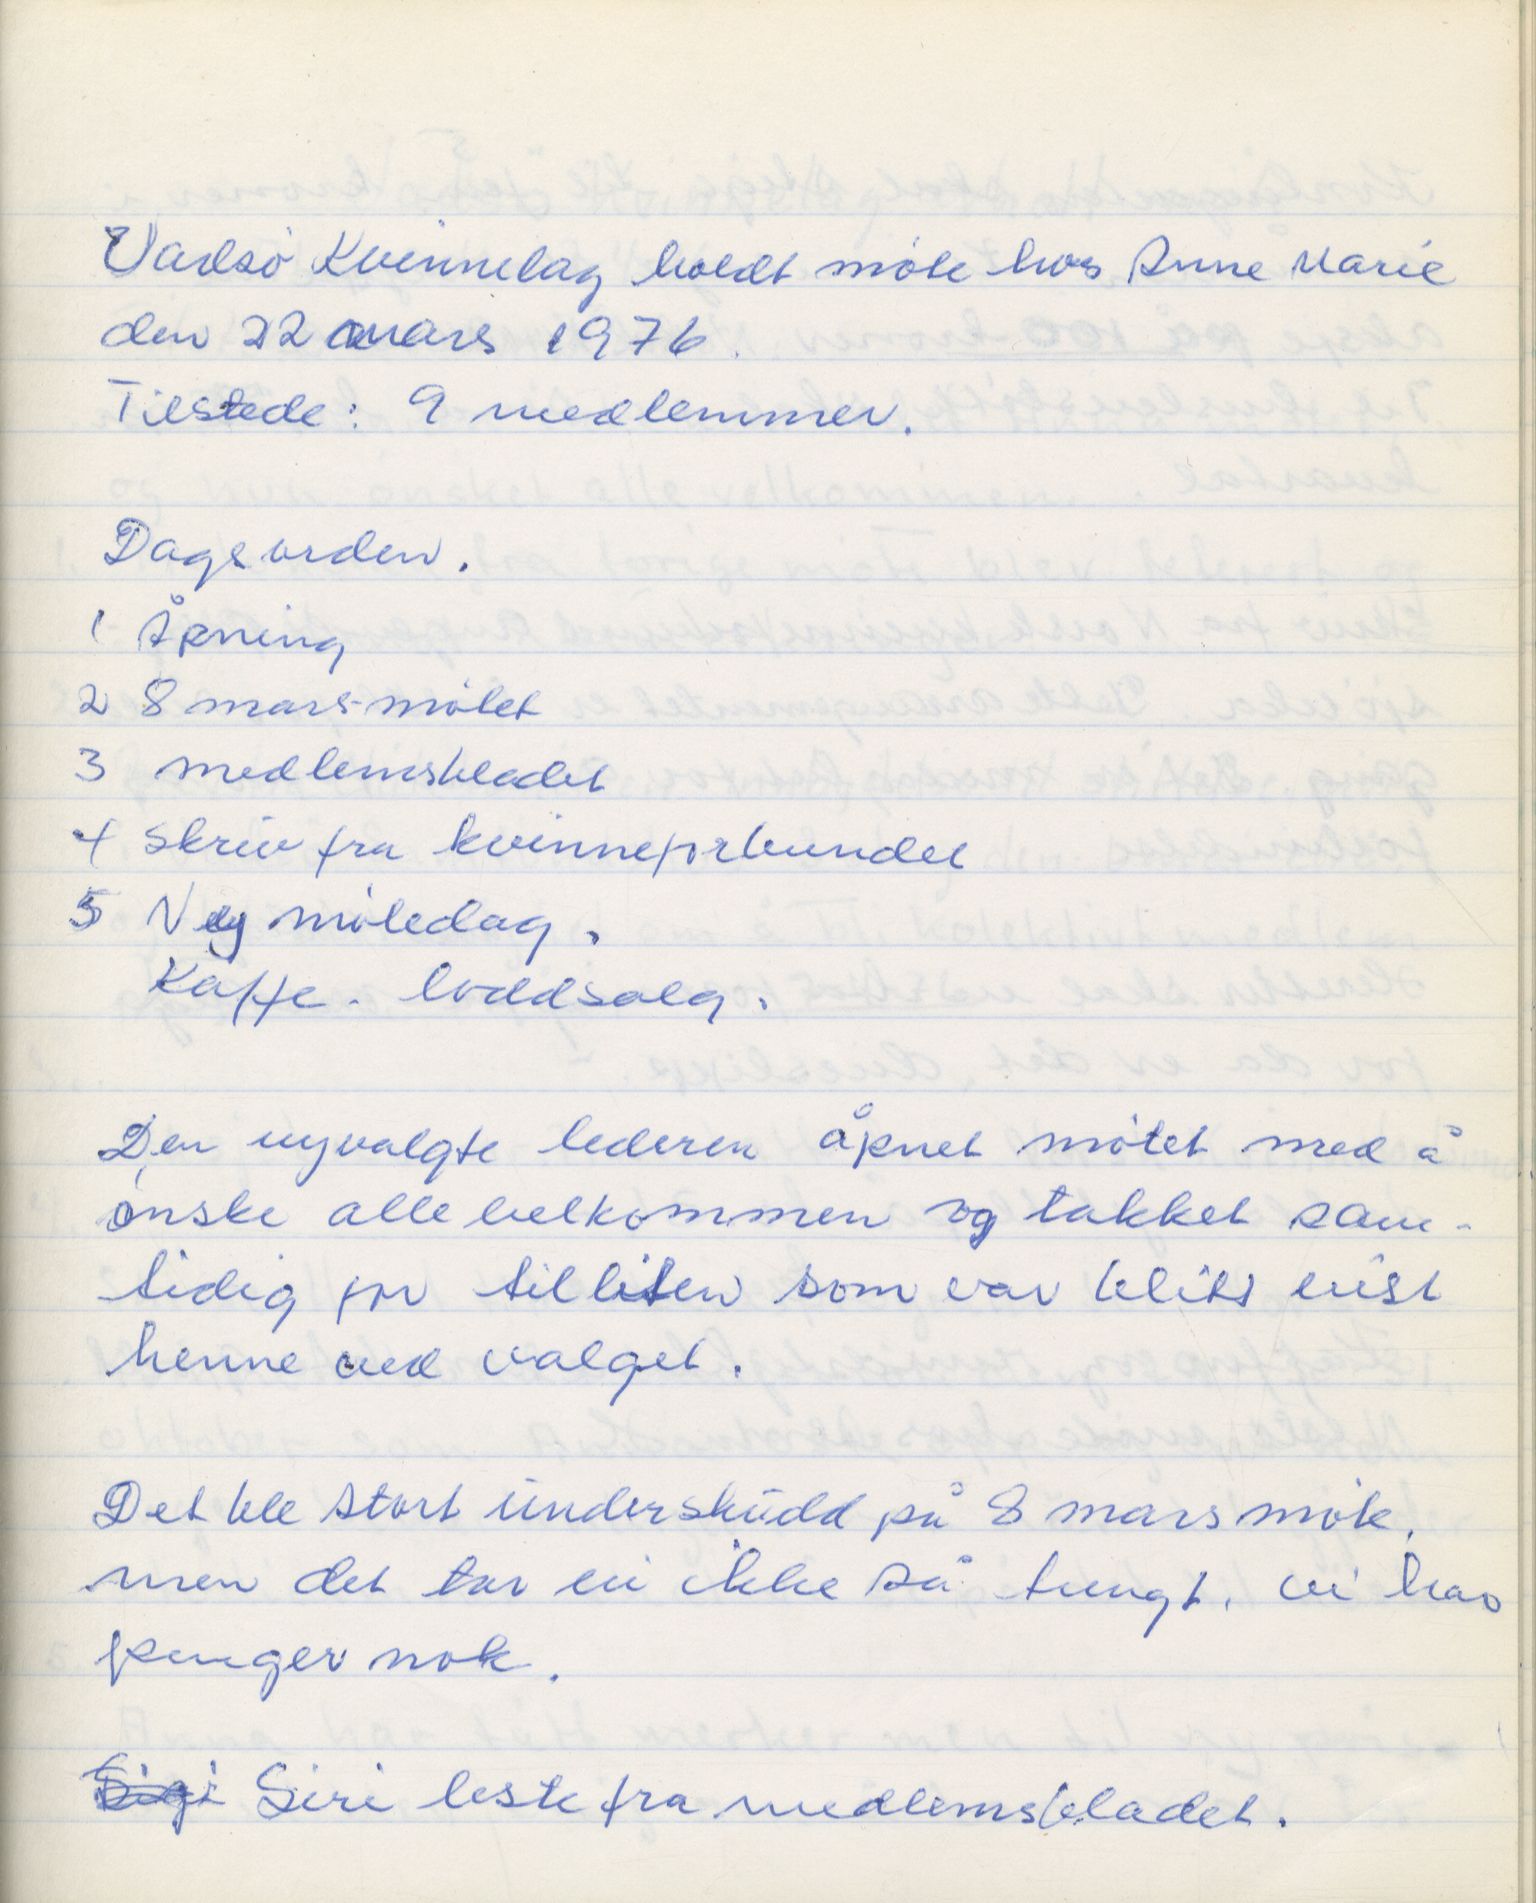 Vadsö Kvinnelag holdt möte hos Anne Marie
den 22 mars 1976.
Tilstede: 9 medlemmer.
Dagsorden.
1 Åpning
2 8 mars-mötet
3 medlemsbladet
4 skriv fra kvinneforbundet
5 Ny mötedag.
Kaffe. loddsalg.
Den nyvalgte lederen åpnet mötet med å
önske alle velkommen og takket sam-
tidig for tilliten som var blitt vist
henne ved valget.
Det ble stort underskudd på 8 mars möte,
men det tar vi ikke så tungt, vi har
penger nok.
Siri leste fra medlemsbladet.